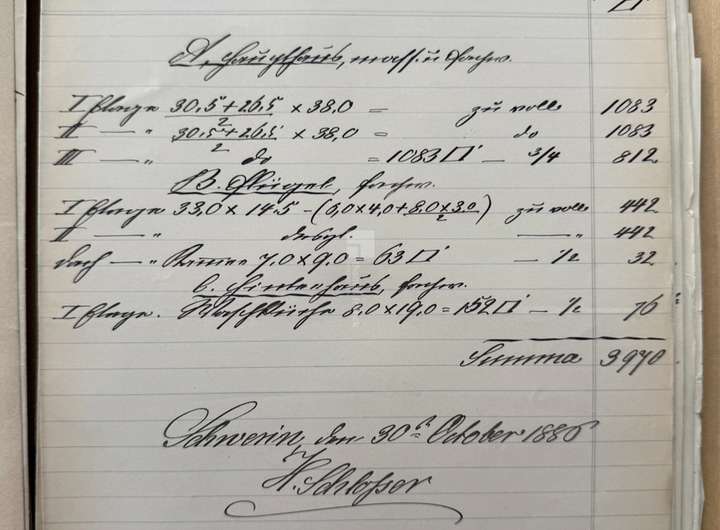 A, Haupthaus, mass. u. Fachw.
I Etage 30,5 + 26,5 / 2 × 38,0 = zu voll 1083
II — " 30,5 + 26,5 / 2 × 38,0 = do 1083
III — " do = 1083 □' — 3/4 812
B. Flügel, Fachw.
I Etage 33,0 × 14,5 – (6,0 × 4,0 + 8,0 × 3,0 / 2) zu voll 442
II — " desgl. — " 442
Dach — " 7,0 × 9,0 = 63 □' — 1/2 32
C. Hinterhaus, Fachw.
I Etage. Waschküche 8,0 × 19,0 = 152 □' — 1/2 76
Summa 3970
Schwerin, den 30th October 1886
H. Schlosser